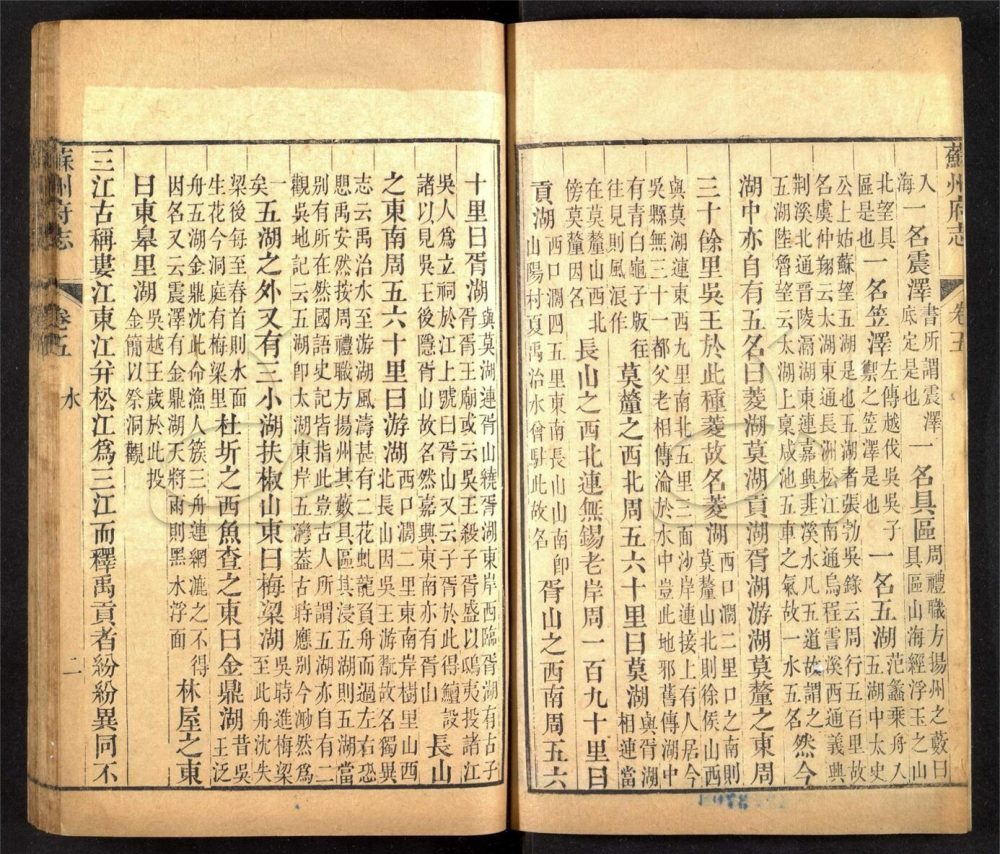 蘇州府志 卷五
入海一名震澤書所謂震澤底定是也一名具區周禮職方揚州之藪曰具區山海經浮玉之山
北望具區是也一名笠澤左傳越伐吳吳子禦之笠澤是也一名五湖范蠡乘舟入五湖中太史
公上姑蘇望五湖是也五湖者張勃吳錄云周行五百里故名虞仲翔云太湖東通長洲松江南通烏程霅溪西通義興
荆溪北通晉陵滆湖東連嘉興韭溪水凡五道故謂之五湖陸魯望云太湖上稟咸池五車之氣故一水五名然今
湖中亦自有五名曰菱湖莫湖貢湖胥湖游湖莫釐之東周
三十餘里吳王於此種菱故名菱湖西口濶二里口之南則莫釐山北則徐候山西
與莫湖連東西九里南北五里三面沙岸連接上有人居今吳縣無三十一都父老相傳淪於水中豈此地邪舊傳湖中
有青白龜子版往往見則風浪作莫釐之西北周五六十里曰莫湖與胥湖相連當
在莫釐山西北傍莫釐因名長山之西北連無錫老岸周一百九十里曰
貢湖西口濶四五里東南長山山南卽山陽村夏禹治水曾駐此故名胥山之西南周五六
十里曰胥湖與莫湖連胥山繞胥湖東岸西臨胥湖有古子胥王廟或云吳王殺子胥盛以鴟夷投諸江
吳人爲立祠於江上號曰胥山又云子胥於此得鱄設諸以見吳王後隱胥山故名然嘉興東南亦有胥山長山
之東南周五六十里曰游湖西口濶二里東南岸樹里山西北長山因吳王游翫故名獨異
志云禹治水至游湖風濤甚有二花虬龍負舟而過左右恐愳禹安然按周禮職方揚州其藪具區其浸五湖則五湖當
別有所在然國語史記皆指此豈古人所謂五湖亦自有二觀吳地記云五湖卽太湖東岸五灣蓋古時應別今渺然爲
一矣五湖之外又有三小湖扶椒山東曰梅梁湖吳時進梅梁至此舟沈失
梁後每至春首則水面生花今洞庭有梅梁里杜圻之西魚查之東曰金鼎湖昔吳王泛
舟五湖金鼎沈此命漁人簇三舟連網漉之不得因名又云震澤有金鼎湖天將雨則黑水浮面林屋之東
曰東臯里湖吳越王歲於此投金簡以祭洞觀
三江古稱婁江東江幷松江爲三江而釋禹貢者紛紛異同不
蘇州府志 卷五 水 二